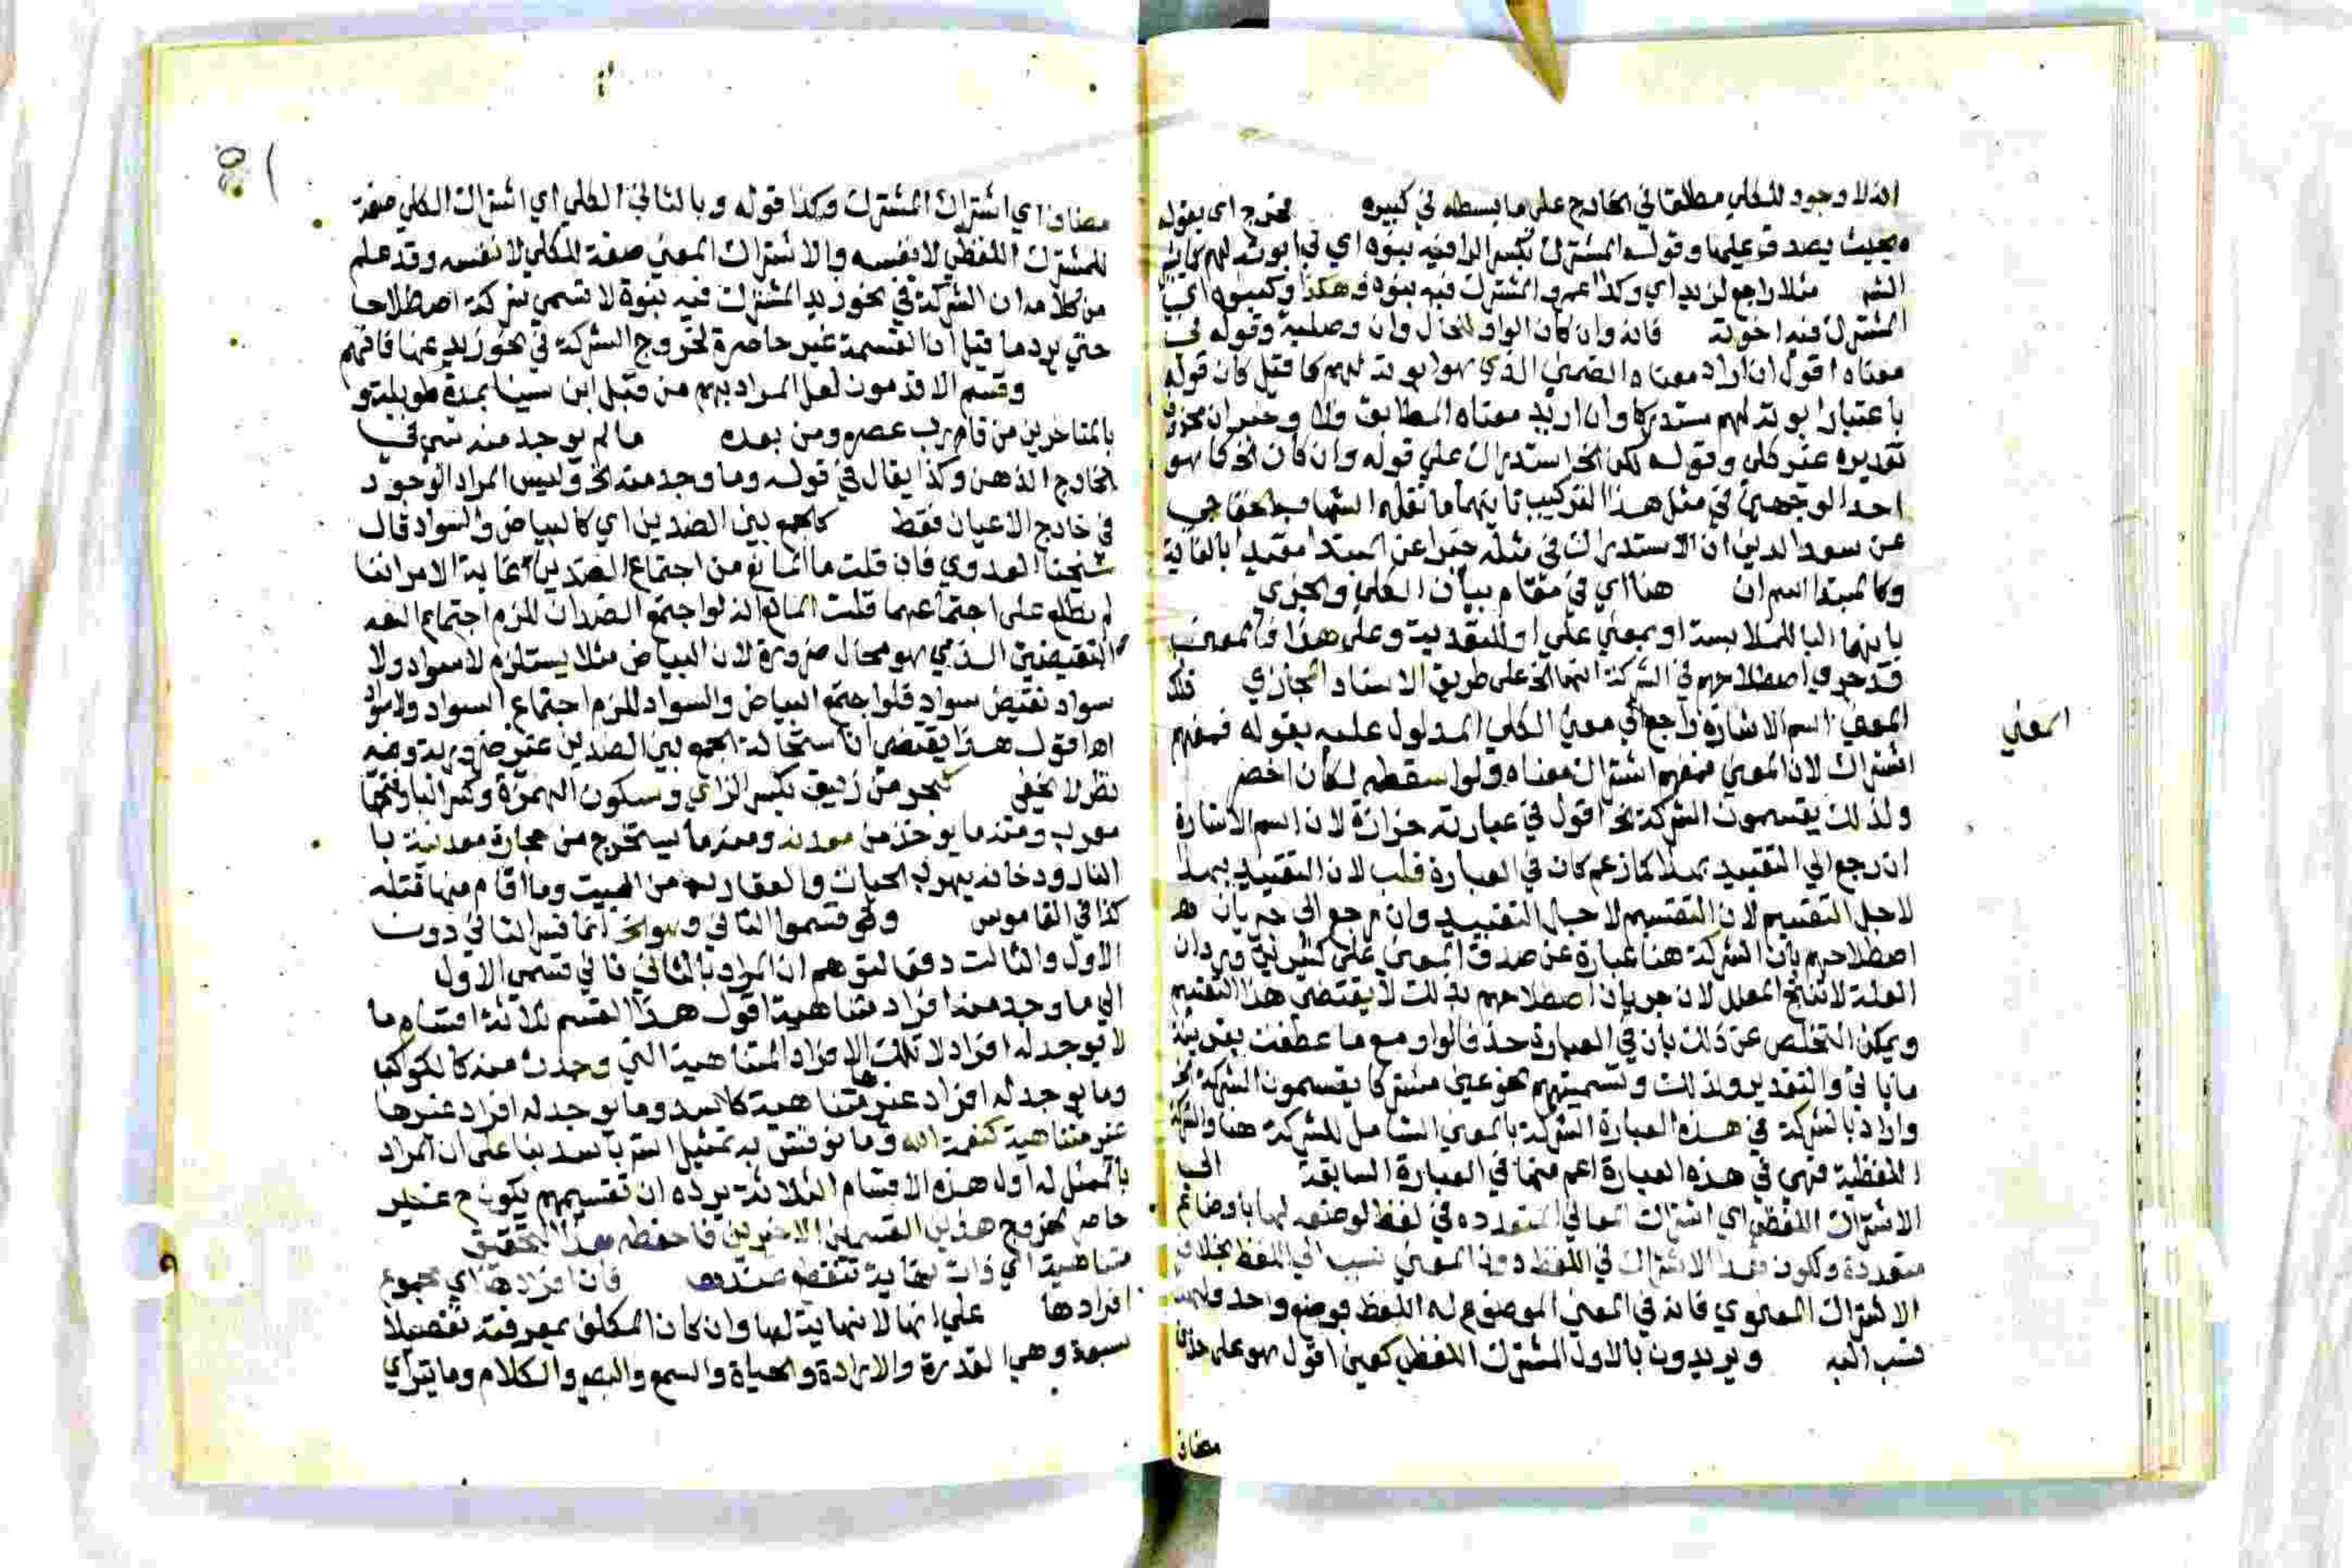 انه لا وجود للكلي مطلقا في الخارج على ما بسطه في كبيره مخرج اي بقوله
بحيث يصدق عليها وقوله المشترك بكسر الرا فيه بنوه اي في ابوته لهم كما في
الشر مثلا راجع لزيد اي وكذا عمرو المشترك فيه بنوه وهكذا وكبنوه اي
المشترك فيه اخوته فانه وان كان الواو للحال وان وصلية وقوله في
معناه اقول ان اراد معناه الضمني الذي هو ابوته لهم كما قيل كان قوله
باعتبار ابوته لهم مستدركا وان اريد معناه المطابق فلا وخبر ان محذوف
تقديره غير كلي وقوله لكن الخ استدراك علي قوله وان كان الخ كما هو
احد الوجهين في مثل هذا التركيب ثانيهما ما نقله الشهاب الخفاجي
عن سعد الدين ان الاستدراك في مثله خبرا عن المبتدا مقيدا بالغاية
وكالمبتدا اسم ان هنا اي في مقام بيان الكلي والجزي
بانها البا للملابسة او بمعني علي او للتعدية وعلي هذا فالمعني
قد جري اصطلاحهم في الشركة انها الخ على طريق الاسناد المجازي ذلك
المعني اسم الاشارة راجع الي معني الكلي المدلول عليه بقوله فمفهم
اشتراك لان المعني فمفهم اشتراك معناه ولو اسقطه لكان اخصر
ولذلك يقسمون الشركة الخ اقول في عبارته حزازة لان اسم الاشارة
ان رجع الي التقييد بهذا كما زعم كان في العبارة قلب لان التقييد بهذا
لاجل التقسيم لان التقسيم لاجل التقييد وان رجع الى جريان
اصطلاحهم بان الشركة هنا عبارة عن صدق المعني على كثيرين ورد ان
العلة لا تنتج المعلل لان جريان اصطلاحهم بذلك لا يقتضي هذا التقسيم
ويمكن التخلص عن ذلك بان في العبارة حذف الواو مع ما عطفت بقرينة
ما ياتي والتقدير ولذلك وتسميتهم نحو عين مشتركا يقسمون الشركة الخ
واراد بالشركة في هذه العبارة الشركة بالمعني الشامل للشركة هنا والشركة
اللفظية فهي في هذه العبارة اعم منها في العبارة السابقة الي
الاشتراك اللفظي اي اشتراك المعاني المتعدده في لفظ لوضعه لها باوضاع
متعددة ولكون هذا الاشتراك في اللفظ دون المعني نسب الي اللفظ بخلاف
الاشتراك المعنوي فانه في المعني الموضوع له اللفظ بوضع واحد فلهذا
نسب اليه ويريدون بالاول المشترك اللفظي كعين اقول هو على حذف
مضاف
المعني
مضاف اي اشتراك المشترك وكذا قوله وبالثاني الكلي اي اشتراك الكلي صفة
للمشترك اللفظي لا نفسه والاشتراك المعني صفة للكلي لا نفسه وقد علم
من كلامه ان الشركة في نحو زيد المشترك فيه بنوة لا تسمي شركة اصطلاحا
حتي يرد ما قيل ان القسمة غير حاصرة لخروج الشركة في نحو زيد عنها فافهم
وقسم الاقدمون لعل المراد بهم من قبل ابن سينا بمدة طويلة و
بالمتاخرين من قارب عصره ومن بعده ما لم يوجد منه شي في
الخارج الذهن وكذا يقال في قوله وما وجد منه الخ وليس المراد الوجود
في خارج الاعيان فقط كالجمع بين الضدين اي كالبياض والسواد قال
شيخنا العدوي فان قلت ما المانع من اجتماع الضدين غاية الامر اننا
لم نطلع على اجتماعهما قلت المانع انه لو اجتمع الضدان للزم اجتماع
النقيضين الذي هو محال ضرورة لان البياض مثلا يستلزم لا سواد ولا
سواد نقيض سواد فلو اجتمع البياض والسواد للزم اجتماع السواد ولا سواد
اه اقول هذا يقتضي ان استحالة الجمع بين الضدين غير ضرورية وفيه
نظر لا يخفي كبحر من زئبق بكسر الزاي وسكون الهمزة وكسر البا وفتحها
معرب ومنه ما يوخذ من معدنه ومنه ما يستخرج من حجارة معدنية با
النار ودخانه يهرب الحيات والعقارب من البيت وما اقام منها قتله
كذا في القاموس وقسموا الثاني وهو الخ انما فسر الثاني دون
الاول والثالث دفعا لتوهم ان المراد بالثاني ثاني قسمي الاول
الي ما وجد منه افراد متناهية اقول هذا القسم ثلاثة اقسام ما
لا يوجد له افراد لا تلك الافراد المتناهية التي وجدت منه كالكوكب
وما يوجد له افراد غيرها متناهية كاسد وما يوجد له افراد غيرها
غير متناهية كنعمة الله وما نوقش به تمثيل الشر باسد بنا على ان المراد
بالممثل له اول هذه الاقسام الثلاثة يرده ان تقسيمهم يكون ح غير
حاصر لخروج هذين القسمين الاخيرين فاحفظه هذا التحقيق
متناهية اي ذات نهاية تنقطع عندها فان افرادها اي مجموع
افرادها علي انها لا نهاية لها وان كان المكلف بمعرفته تفصيلا
سبعة وهي القدرة والارادة والحياة والسمع والبصر والكلام وما يتراي